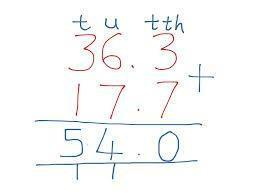 t u tth
36.3
17.7 +
54.0
1 1